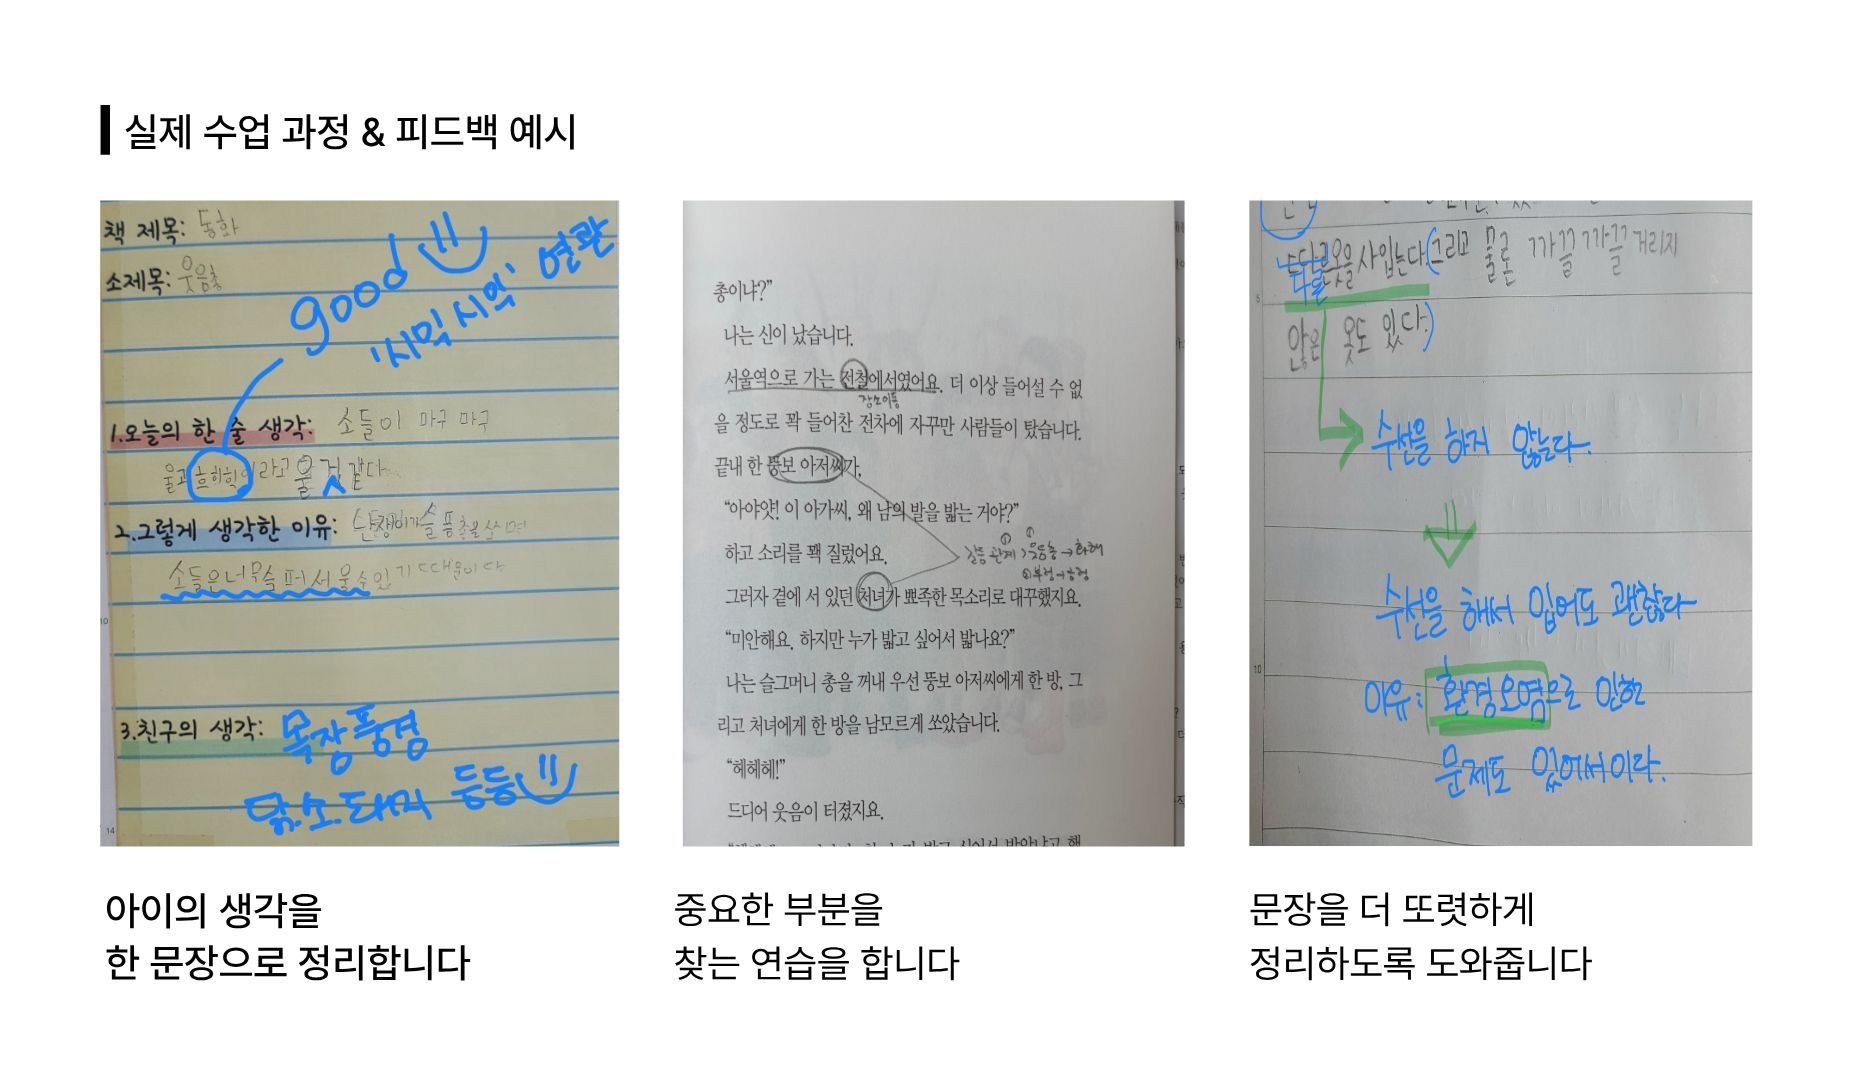 실제 수업 과정 & 피드백 예시
책 제목: 동화
소제목: 웃음총
good
'시익 시익' 연관
1.오늘의 한 줄 생각: 소들이 마구 마구
울고 흐히힉이라고 울 것 같다
2.그렇게 생각한 이유:
소들은 너무 슬퍼서 울 수 있기 때문이다
3.친구의 생각: 목장풍경
닭.소.돼지 등등
10
14
아이의 생각을
한 문장으로 정리합니다
총이냐?”
나는 신이 났습니다.
서울역으로 가는 전철에서였어요. 더 이상 들어설 수 없
장소이동
을 정도로 꽉 들어찬 전차에 자꾸만 사람들이 탔습니다.
끝내 한 뚱보 아저씨가,
“아야얏! 이 아가씨, 왜 남의 발을 밟는 거야?”
하고 소리를 꽥 질렀어요.
갈등 관계 웃음총→화해
①부정→긍정
그러자 곁에 서 있던 처녀가 뾰족한 목소리로 대꾸했지요.
“미안해요. 하지만 누가 밟고 싶어서 밟나요?”
나는 슬그머니 총을 꺼내 우선 뚱보 아저씨에게 한 방, 그
리고 처녀에게 한 방을 남모르게 쏘았습니다.
“헤헤헤!”
드디어 웃음이 터졌지요.
중요한 부분을
찾는 연습을 합니다
옷을 사 입는다. (그리고 물론 까끌까끌 거리지
다른
않은 옷도 있다.)
수선을 하지 않는다.
수선을 해서 입어도 괜찮다
이유: 환경오염으로 인한
문제도 있어서이다.
10
문장을 더 또렷하게
정리하도록 도와줍니다